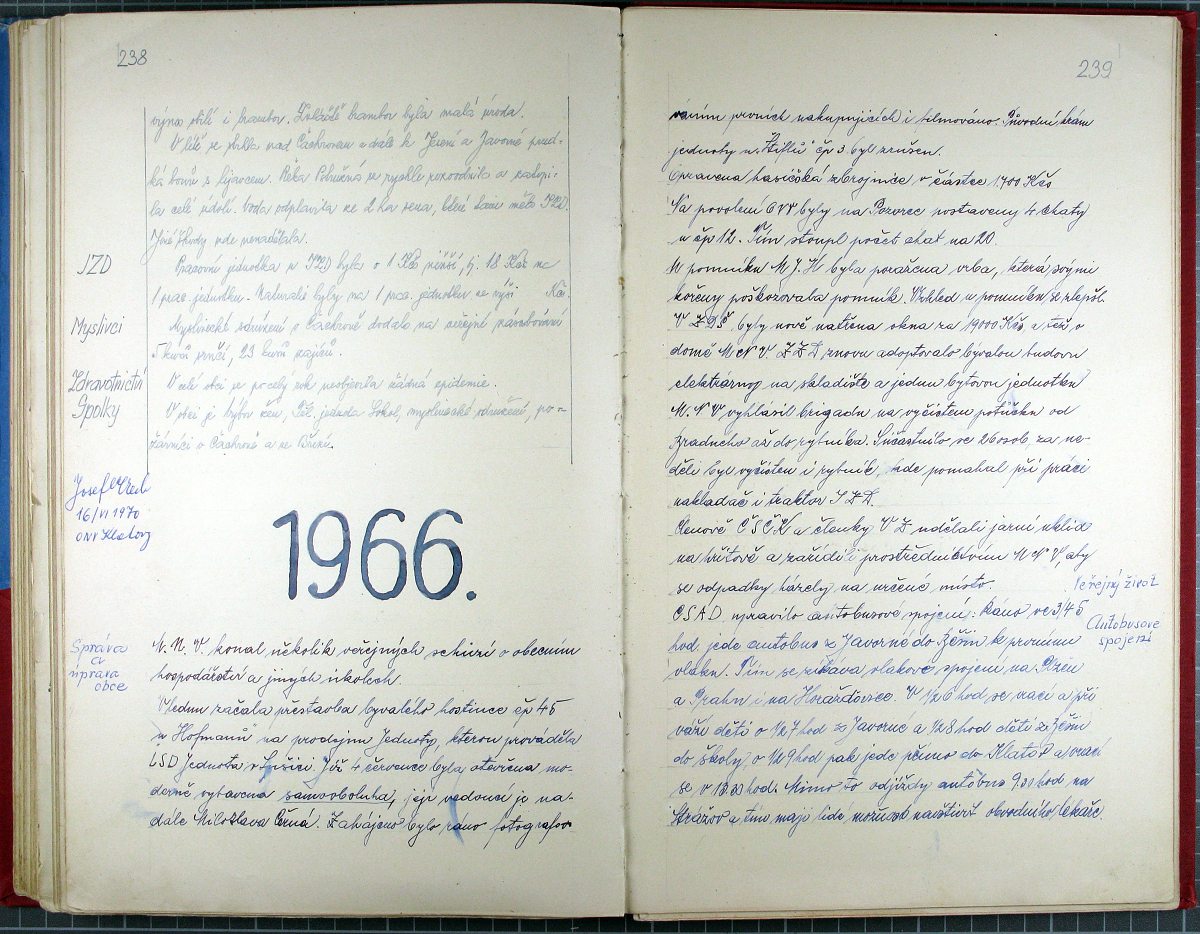 238
výnos obilí i brambor. Zvláště brambor byla malá úroda.
V létě se strhla nad Čachrovem a dále k Jesení a Javorné prud-
ká bouře s lijavcem. Řeka Ostružná se rychle rozvodnila a zatopi-
la celé údolí. Voda odplavila ze 2 ha sena, které tam mělo JZD.
Jiné škody zde nenadělala.
JZD
Pracovní jednotka u JZD byla o 1 Kčs nižší, tj. 18 Kčs na
1 prac. jednotku. Naturalie byly na 1 prac. jednotku ve výši Kčs.
Myslivci
Myslivecké sdružení v Čachrově dodalo na veřejné zásobování
5 kusů srnčí, 23 kusů zajíců.
Zdravotnictví
V celé obci se po celý rok neobjevila žádná epidemie.
Spolky
V obci je Výbor žen, Těl. jednota Sokol, myslivecké sdružení, po-
žárníci v Čachrově a ve Březí.
Josef
16/VI 1970
ONV Klatovy
1966.
Správa
a
úprava
obce
M. N. V. konal několik veřejných schůzí o obecním
hospodářství a jiných úkolech.
V lednu začala přestavba bývalého hostince čp 45
u Hofmanů na prodejnu Jednoty, kterou prováděla
LSD Jednota v Sušici. Již 4 července byla otevřena mo-
derně vybavena samoobsluha, její vedoucí je na-
dále Miloslava Černá. Zahájeno bylo ráno fotografov
239
váním prvních nakupujících i filmováno. Původní krám
jednoty u čp 3 byl zrušen.
Opravena hasičská zbrojnice v částce 1.700 Kčs
Na povolení ONV byly na Bozorec postaveny 4 chaty
u čp 12. Tím stoupl počet chat na 20.
U pomníku M. J. H byla poražena vrba, která svými
kořeny poškozovala pomník. Vzhled u pomníku se zlepšil.
V ZDŠ byly nově natřena okna za 19000 Kčs, a též v
domě MNV. JZD znovu adoptovalo bývalou budovu
elektrárny na skladiště a jednu bytovou jednotku
M. N V vyhlásil brigadu na vyčistění potůčku od
Bradného až do rybníka. Súčastnilo se 26 osob, za ne-
děli byl vyčistěn i rybník, kde pomahal při práci
nakladač i traktor JZD.
Členové ČSČK a členky VŽ udělali jarní uklid
na hřbitově a zařídili prostřednictvím MNV, aby
se odpadky házely na určené místo.
Veřejný život
ČSAD upravilo autobusové spojení: Ráno ve 3/45
Autobusové
spojení
hod. jede autobus z Javorné do Běšin k prvnímu
vlaku. Tím se získává vlakové spojení na Plzeň
a Prahu i na Horažďovice. V 1/2 6 hod se vrací a při
váží děti v 1/2 7 hod z Javorné a 1/2 8 hod děti z Běšin
do školy, v 1/2 9 hod pak jede přímo do Klatov a vrací
se v hod. Mimo to odjíždy autobus 9.00 hod na
Strážov a tím mají lidé možnost navštívit obvodního lékaře.